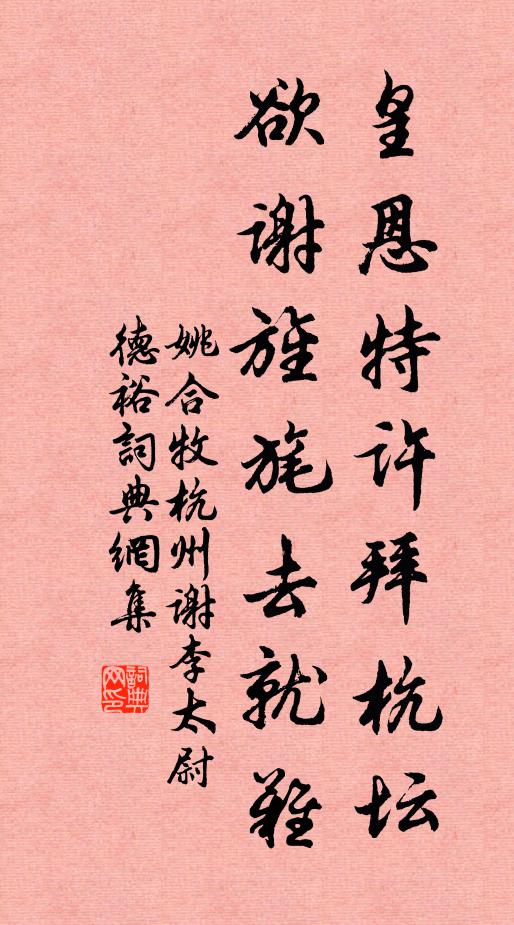 皇恩特许拜杭坛
欲谢旌旄去就难
姚合牧杭州谢李太尉
德裕詞典網集
詞典网印